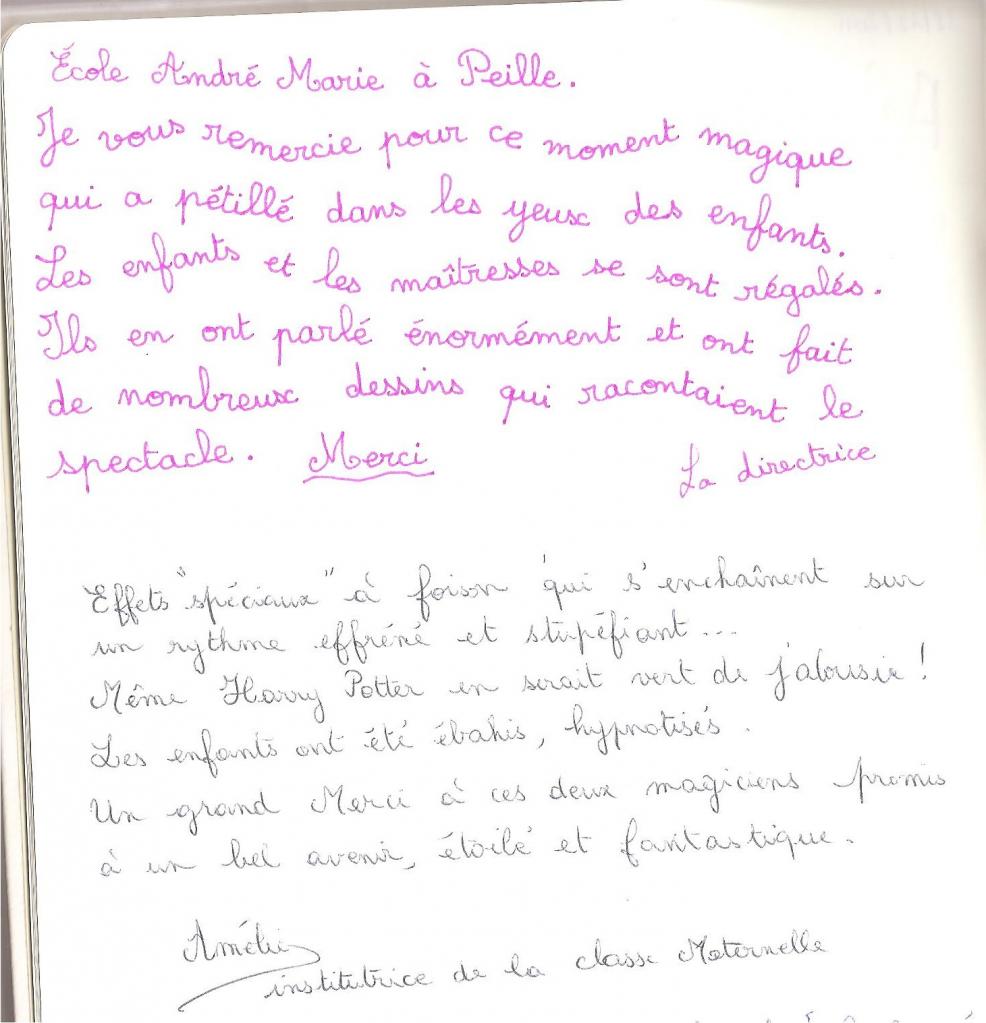 École André Marie à Peille.
Je vous remercie pour ce moment magique
qui a pétillé dans les yeux des enfants.
Les enfants et les maîtresses se sont régalés.
Ils en ont parlé énormément et ont fait
de nombreux dessins qui racontaient le
spectacle. Merci
La directrice
Effets "spéciaux" à foison qui s'enchaînent sur
un rythme effréné et stupéfiant...
Même Harry Potter en serait vert de jalousie !
Les enfants ont été ébahis, hypnotisés.
Un grand Merci à ces deux magiciens promis
à un bel avenir, étoilé et fantastique.
Amélie
institutrice de la classe Maternelle